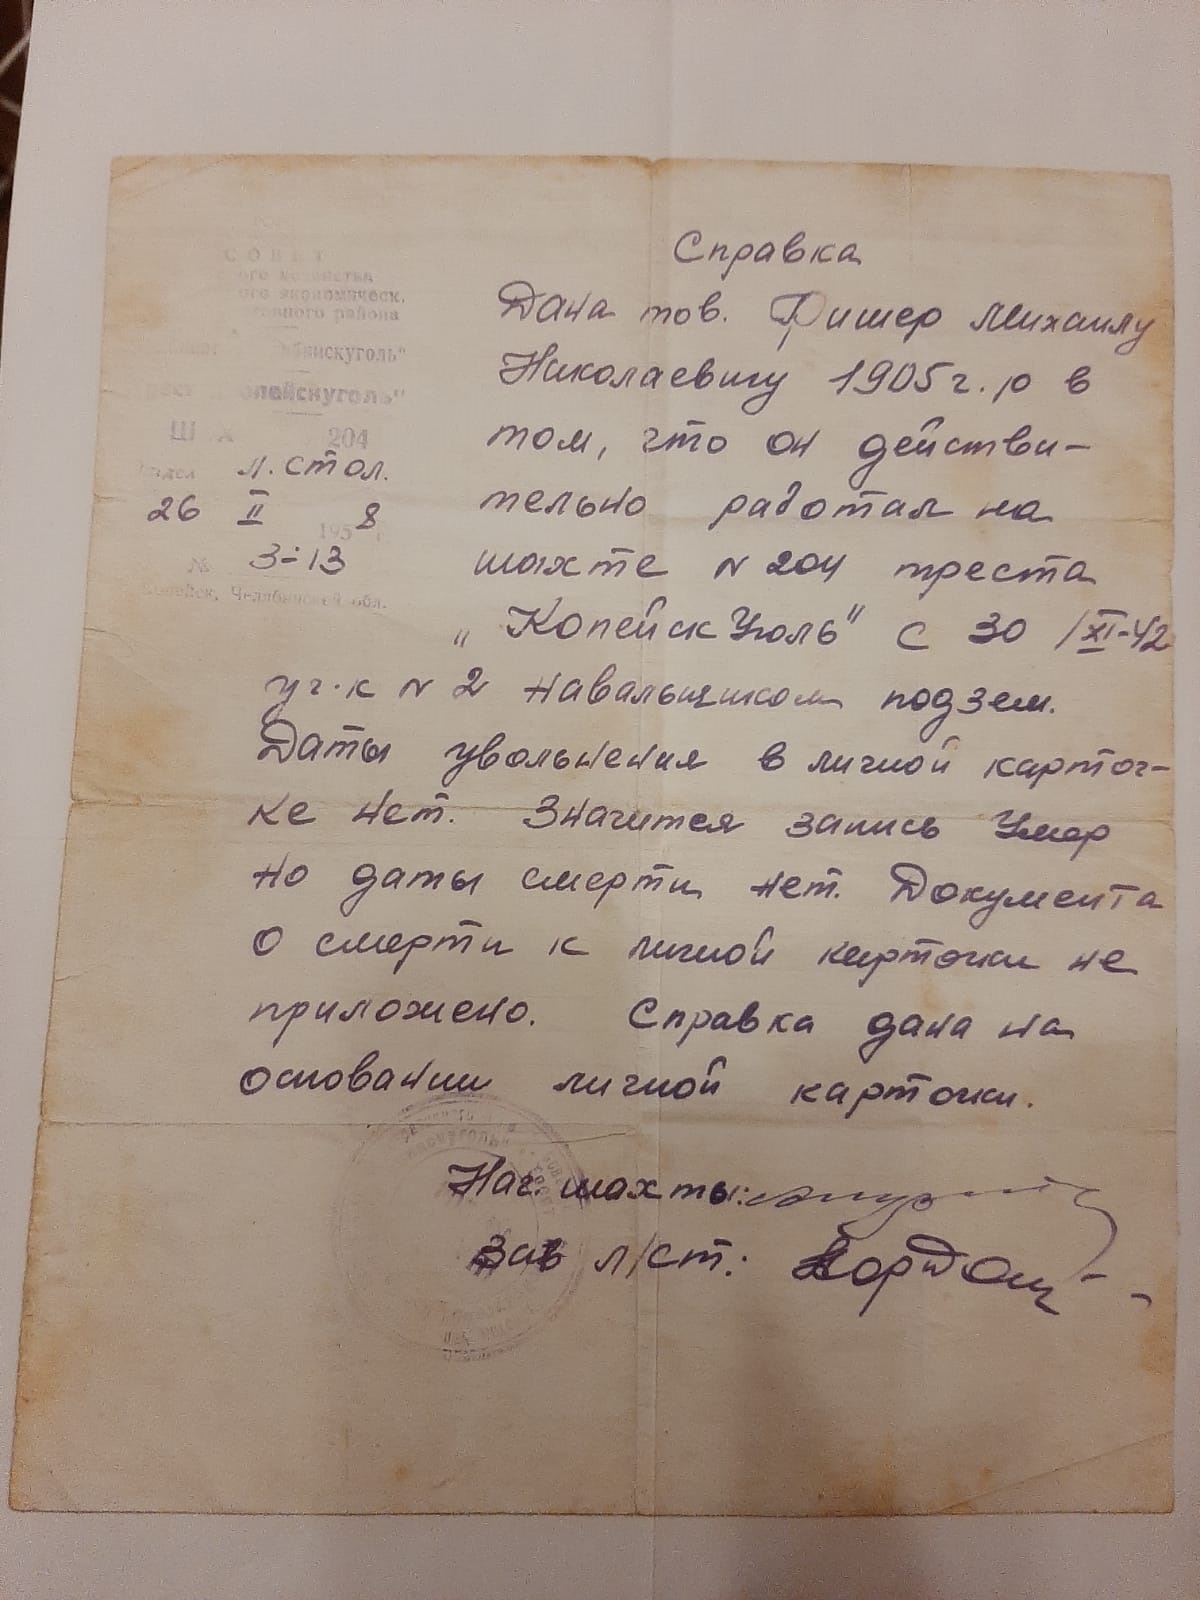 Справка
СОВЕТ
экономическ.
района
"
204
л. стол.
26 II 1958
№ 3-13
Копейск, Челябинской обл.
Дана тов. Фишер Михаилу
Николаевичу 1905 г. р в
том, что он действи-
тельно работал на
шахте N 204 треста
„КопейскУголь" с 30/XI-42
уч-к N 2 навальщиком подзем.
Даты увольнения в личной карточ-
ке нет. Значится запись Умер
но даты смерти нет. Документа
о смерти к личной карточки не
приложено. Справка дана на
основании личной карточки.
Нач. шахты:
Зав л/ст.: